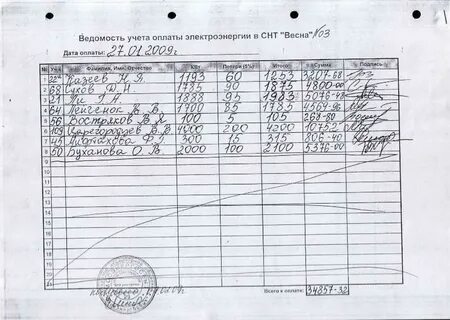 Ведомость учета оплаты электроэнергии в СНТ "Весна" №3
Дата оплаты: 27.01.2009г
№ Уч. Фамилия, Имя, Отчество кВт Потери (5%) Итого Сумма Подпись
1 22 Казеев Н. Я. 1193 60 1253 3207-68
2 68 Сухов Д. Н. 1785 90 1875 4800-00
3 21 Ли Г. А. 1888 95 1983 5076-48
4 64 В. В. 1700 85 1785 4569-60
5 56 Востряков В. 100 5 105 268-80
6 109 Царегородцев В. В. 4000 200 4200 10752
7 45 Ф. 300 15 315 806-40
8 50 Буханова О. В. 2000 100 2100 5376-00
Всего к оплате: 34857-32